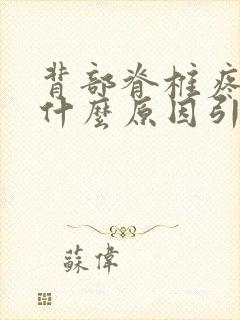 背部脊椎疼
什麼原因引
蘇偉